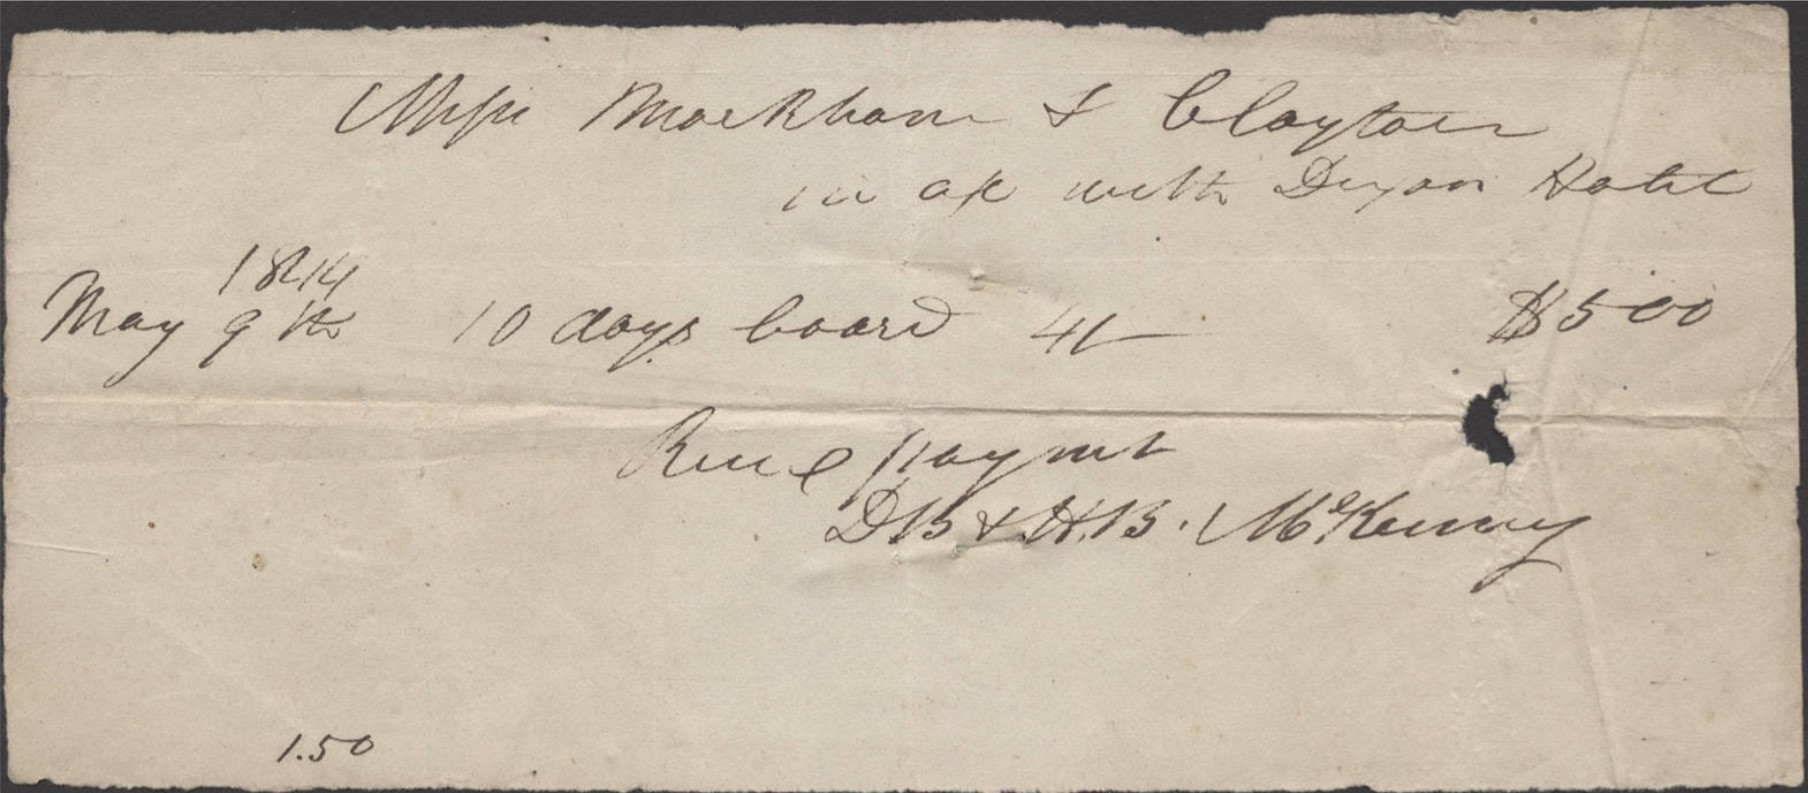 Messrs Markham & Clayton
in a/c with Dixon Hotel
1844
May 9th 10 days board 4/- $5 00
Recd paymt
D.B & H.B. McKenney
1.50